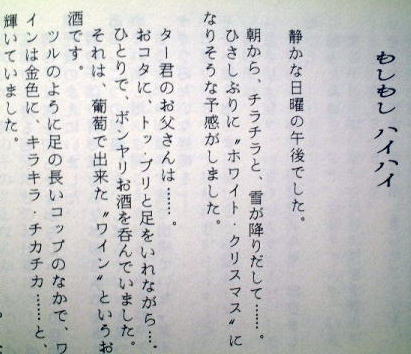 もしもし ハイハイ
静かな日曜の午後でした。
朝から、チラチラと、雪が降りだして……。
ひさしぶりに〝ホワイト・クリスマス〟に
なりそうな予感がしました。
ター君のお父さんは……。
おコタに、トップリと足をいれながら…、
ひとりで、ボンヤリお酒を呑んでいました。
それは、葡萄で出来た〝ワイン〟というお
酒です。
ツルのように足の長いコップのなかで、ワ
インは金色に、キラキラ・チカチカ……と、
輝いていました。